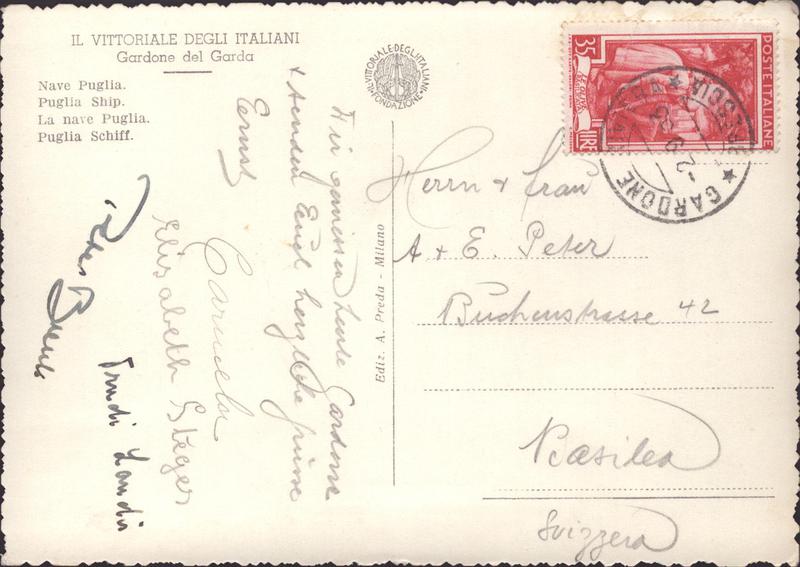 IL VITTORIALE DEGLI ITALIANI
Gardone del Garda
Nave Puglia.
Puglia Ship.
La nave Puglia.
Puglia Schiff.
IL VITTORIALE DEGL'ITALIANI
FONDAZIONE
Wir geniessen heute Gardone
+ senden Euch herzliche Grüsse
Ernst
Carmela
Elisabeth Steger
Trudi Landis
Ediz. A. Preda - Milano
35
LIRE
POSTE ITALIANE
GARDONE RIVIERA
BRESCIA
Herrn & Frau
A + E. Peter
Buchenstrasse 42
Basilea
Svizzera